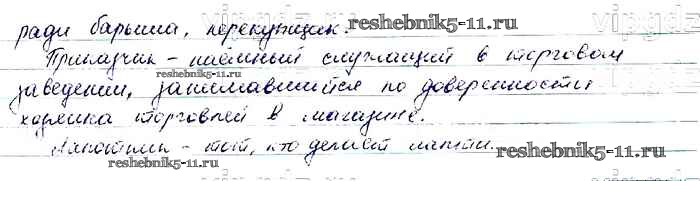 ради барыша, перекупщик. reshebnik5-11.ru
Приказчик - наёмный служащий в торговом
reshebnik5-11.ru
заведении, занимавшийся по доверенности
хозяина торговлей в магазине.
Лапотник - тот, кто делает лапти. reshebnik5-11.ru
reshebnik5-11.ru